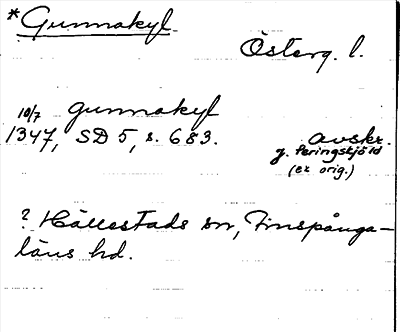 *Gunnakyl.
Österg. l.
10/7 gunnakyl
1347, SD 5, s. 683.
avskr.
g. Peringskjöld
(ex orig.)
? Hällestads sn, Finspånga-
läns hd.